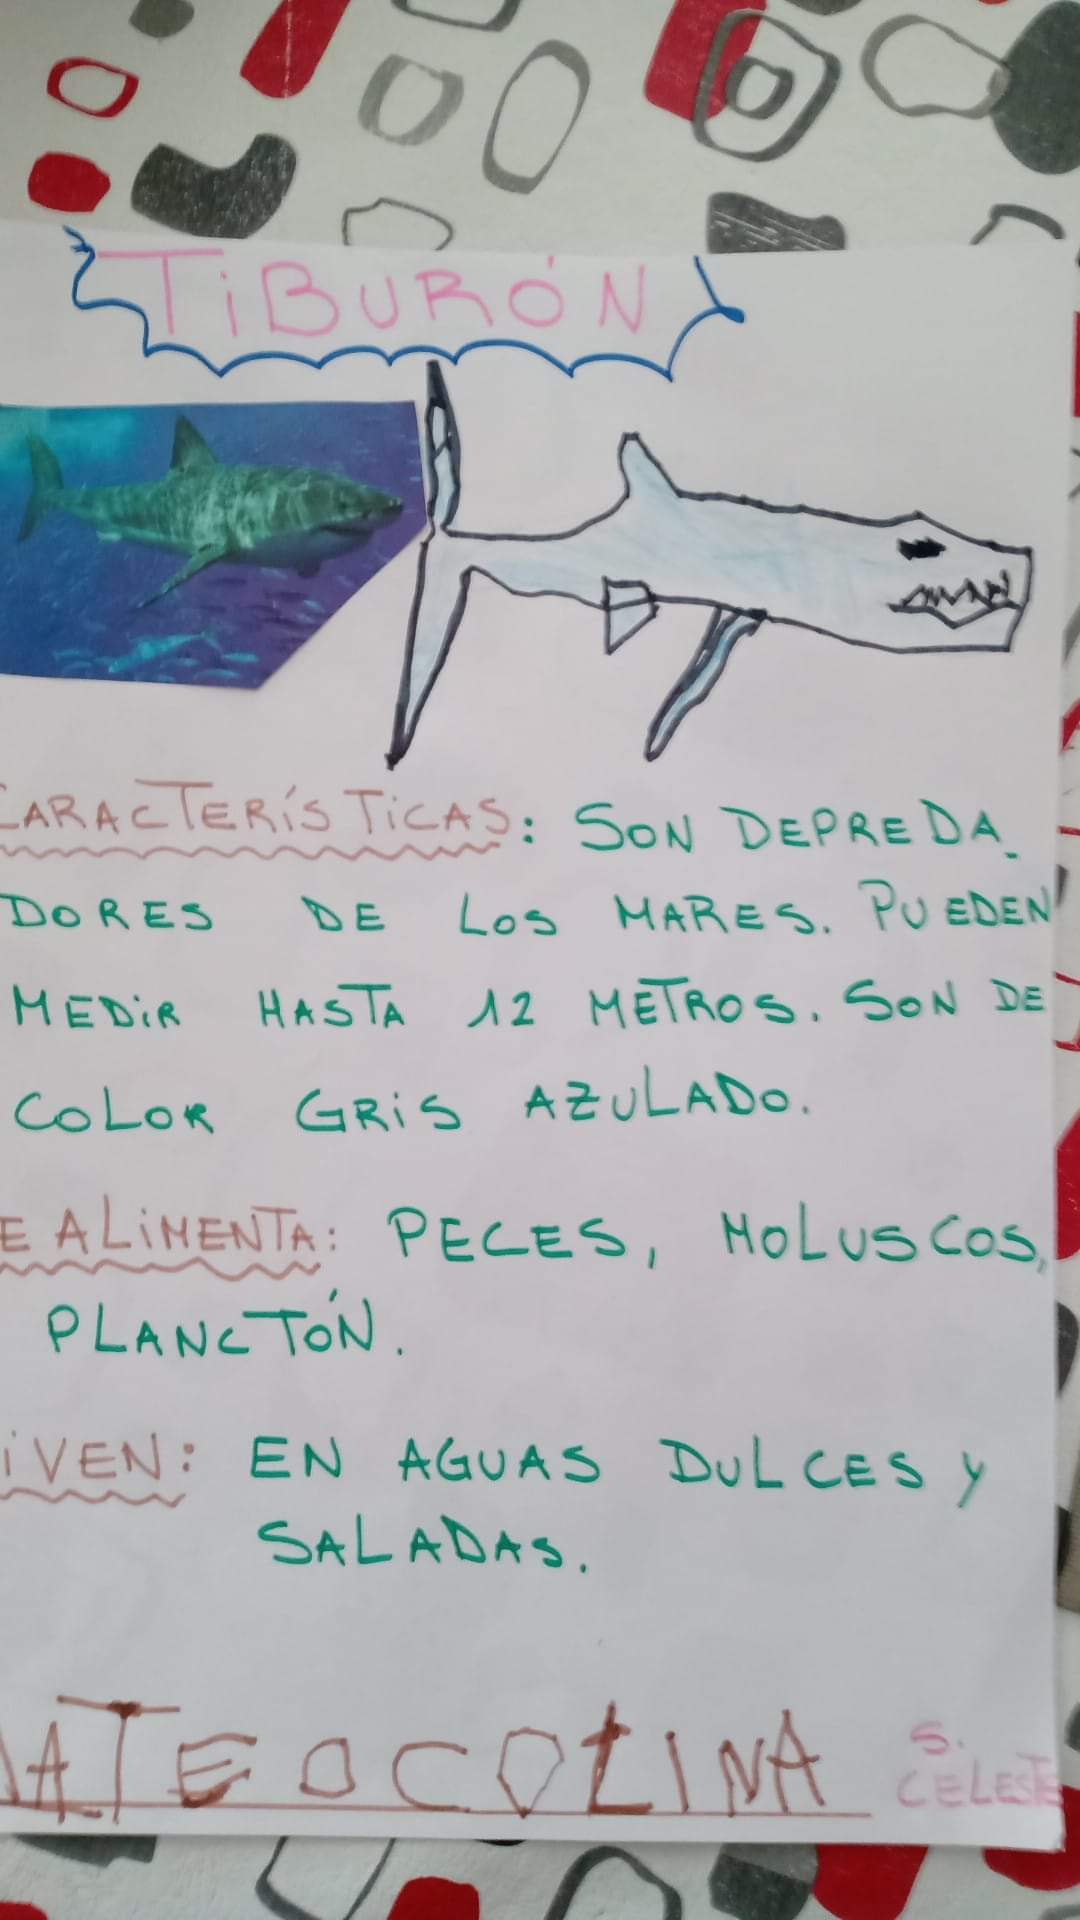 TiBURÓN
CARACTERÍSTiCAS: SON DEPREDA
DORES DE LOS MARES. PUEDEN
MEDiR HASTA 12 METROS. SON DE
COLOR GRiS AZULADO.
E ALiMENTA: PECES, MOLUSCOS,
PLANCTÓN.
iVEN: EN AGUAS DULCES Y
SALADAS.
ATEO COLINA
S.
CELESTE